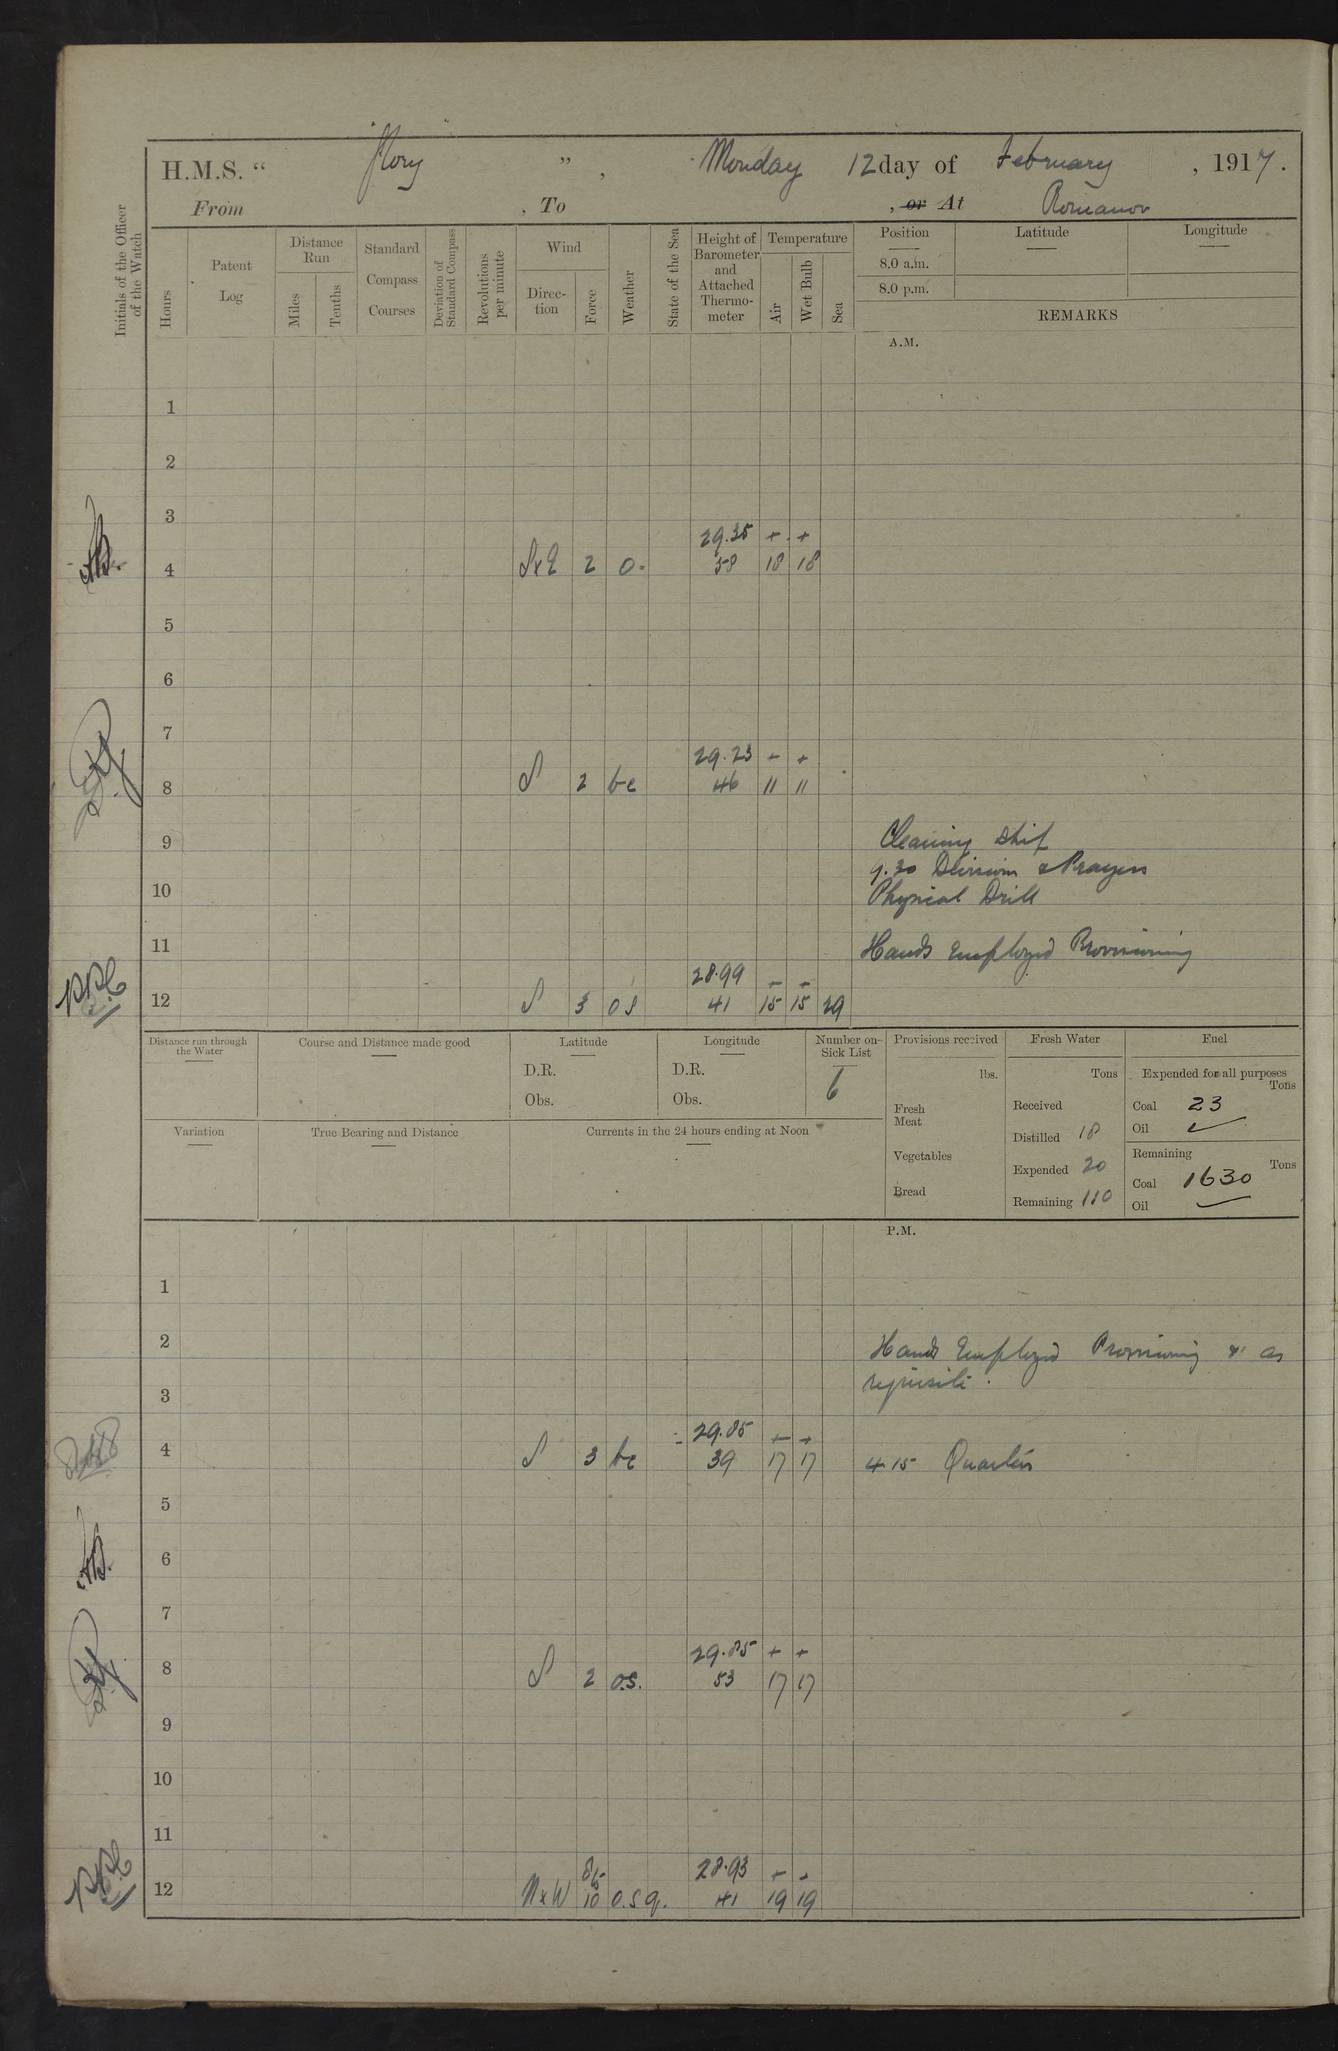 H.M.S. “ Glory ” , Monday 12 day of February , 1917 .
From , To , or At Romanov
Initials of the Officer of the Watch
Hours
Patent Log
Distance Run
Miles
Tenths
Standard Compass Courses
Deviation of Standard Compass
Revolutions per minute
Wind
Direc-tion
Force
Weather
State of the Sea
Height of Barometer and Attached Thermo-meter
Temperature
Air
Wet Bulb
Sea
Position Latitude Longitude
8.0 a.m.
8.0 p.m.
REMARKS
A.M.
1
2
3
29.35 + +
4 SxE 2 o. 58 18 18
5
6
7
29.23 + +
8 S 2 bc 46 11 11
9 Cleaning Ship
9.30 Division & Prayers
10 Physical Drill
11 Hands Employed Provisioning
28.99 + +
12 S 3 os 41 15 15 29
Distance run through the Water
Course and Distance made good
Latitude
D.R.
Obs.
Longitude
D.R.
Obs.
Number on Sick List
6
Provisions received
lbs.
Fresh Meat
Vegetables
Bread
Fresh Water
Tons
Received
Distilled 18
Expended 20
Remaining 110
Fuel
Expended for all purposes
Tons
Coal 23
Oil
Remaining
Tons
Coal 1630
Oil
Variation
True Bearing and Distance
Currents in the 24 hours ending at Noon
P.M.
1
2 Hands Employed Provisioning & as
requisite.
3
29.05 + +
4 S 3 bc 39 17 17 4 15 Quarters
5
6
7
29.85 + +
8 S 2 o.s. 53 17 17
9
10
11
28.93 + +
12 NxW 10 o.s q. 41 19 19